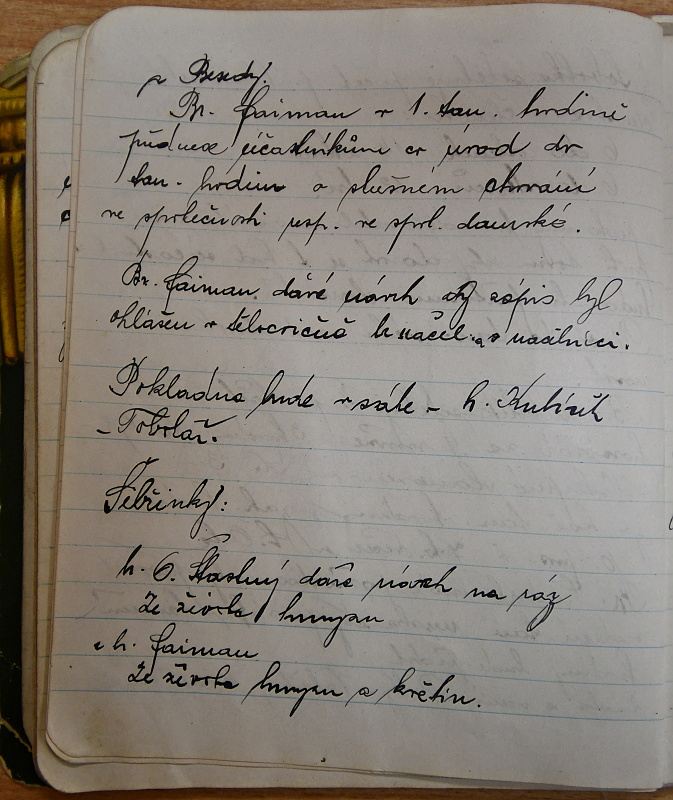 z Besedy.
Br. Faiman v 1. tan. hodině
přednese účastníkům co úvod do
tan. hodin o slušném chování
ve společnosti resp. ve spol. taneční.
Br. Faiman dává návrh aby zápis byl
ohlášen v tělocvičně br. náčel. a s. náčelnicí.
Pokladna bude v sále - br. Kubíček
- Tobolář.
Šibřinky:
br. O. Šťastný dává návrh na ráz
Ze života hmyzu
a br. Faiman
Ze života hmyzu a květin.